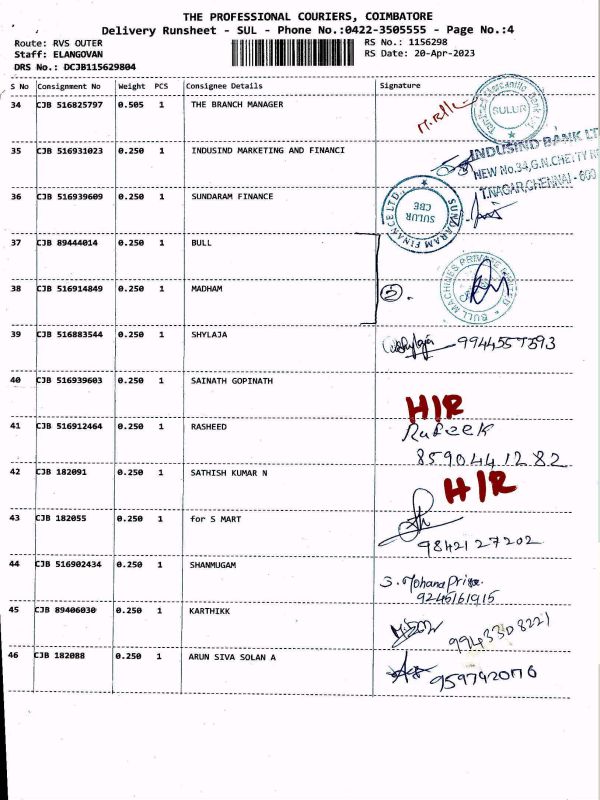 THE PROFESSIONAL COURIERS, COIMBATORE
Delivery Runsheet - SUL - Phone No.:0422-3505555 - Page No.:4
Route: RVS OUTER
RS No.: 1156298
Staff: ELANGOVAN
RS Date: 20-Apr-2023
DRS No.: DCJB115629804
S No Consignment No Weight PCS Consignee Details Signature
34 CJB 516825797 0.505 1 THE BRANCH MANAGER
SULUR
35 CJB 516931023 0.250 1 INDUSIND MARKETING AND FINANCI
INDUSIND BANK LT
NEW No.34, G.N.CHETTY R
T.NAGAR, CHENNAI - 600
36 CJB 516939609 0.250 1 SUNDARAM FINANCE
SUNDARAM FINANCE LTD.,
SULUR
CBE
37 CJB 89444014 0.250 1 BULL
38 CJB 516914849 0.250 1 MADHAM
5
BULL MACHINES PRIVATE
39 CJB 516883544 0.250 1 SHYLAJA
40 CJB 516939603 0.250 1 SAINATH GOPINATH
H/R
41 CJB 516912464 0.250 1 RASHEED
Rafeek
8590441282
42 CJB 182091 0.250 1 SATHISH KUMAR N
H/R
43 CJB 182055 0.250 1 for S MART
9842127202
44 CJB 516902434 0.250 1 SHANMUGAM
S. Mohana Priya.
9245161915
45 CJB 89406030 0.250 1 KARTHIKK
9943308221
46 CJB 182088 0.250 1 ARUN SIVA SOLAN A